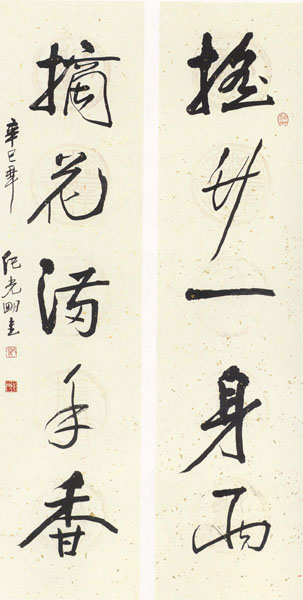 摇竹一身雨
摘花满手香
辛巳年 纪光明书